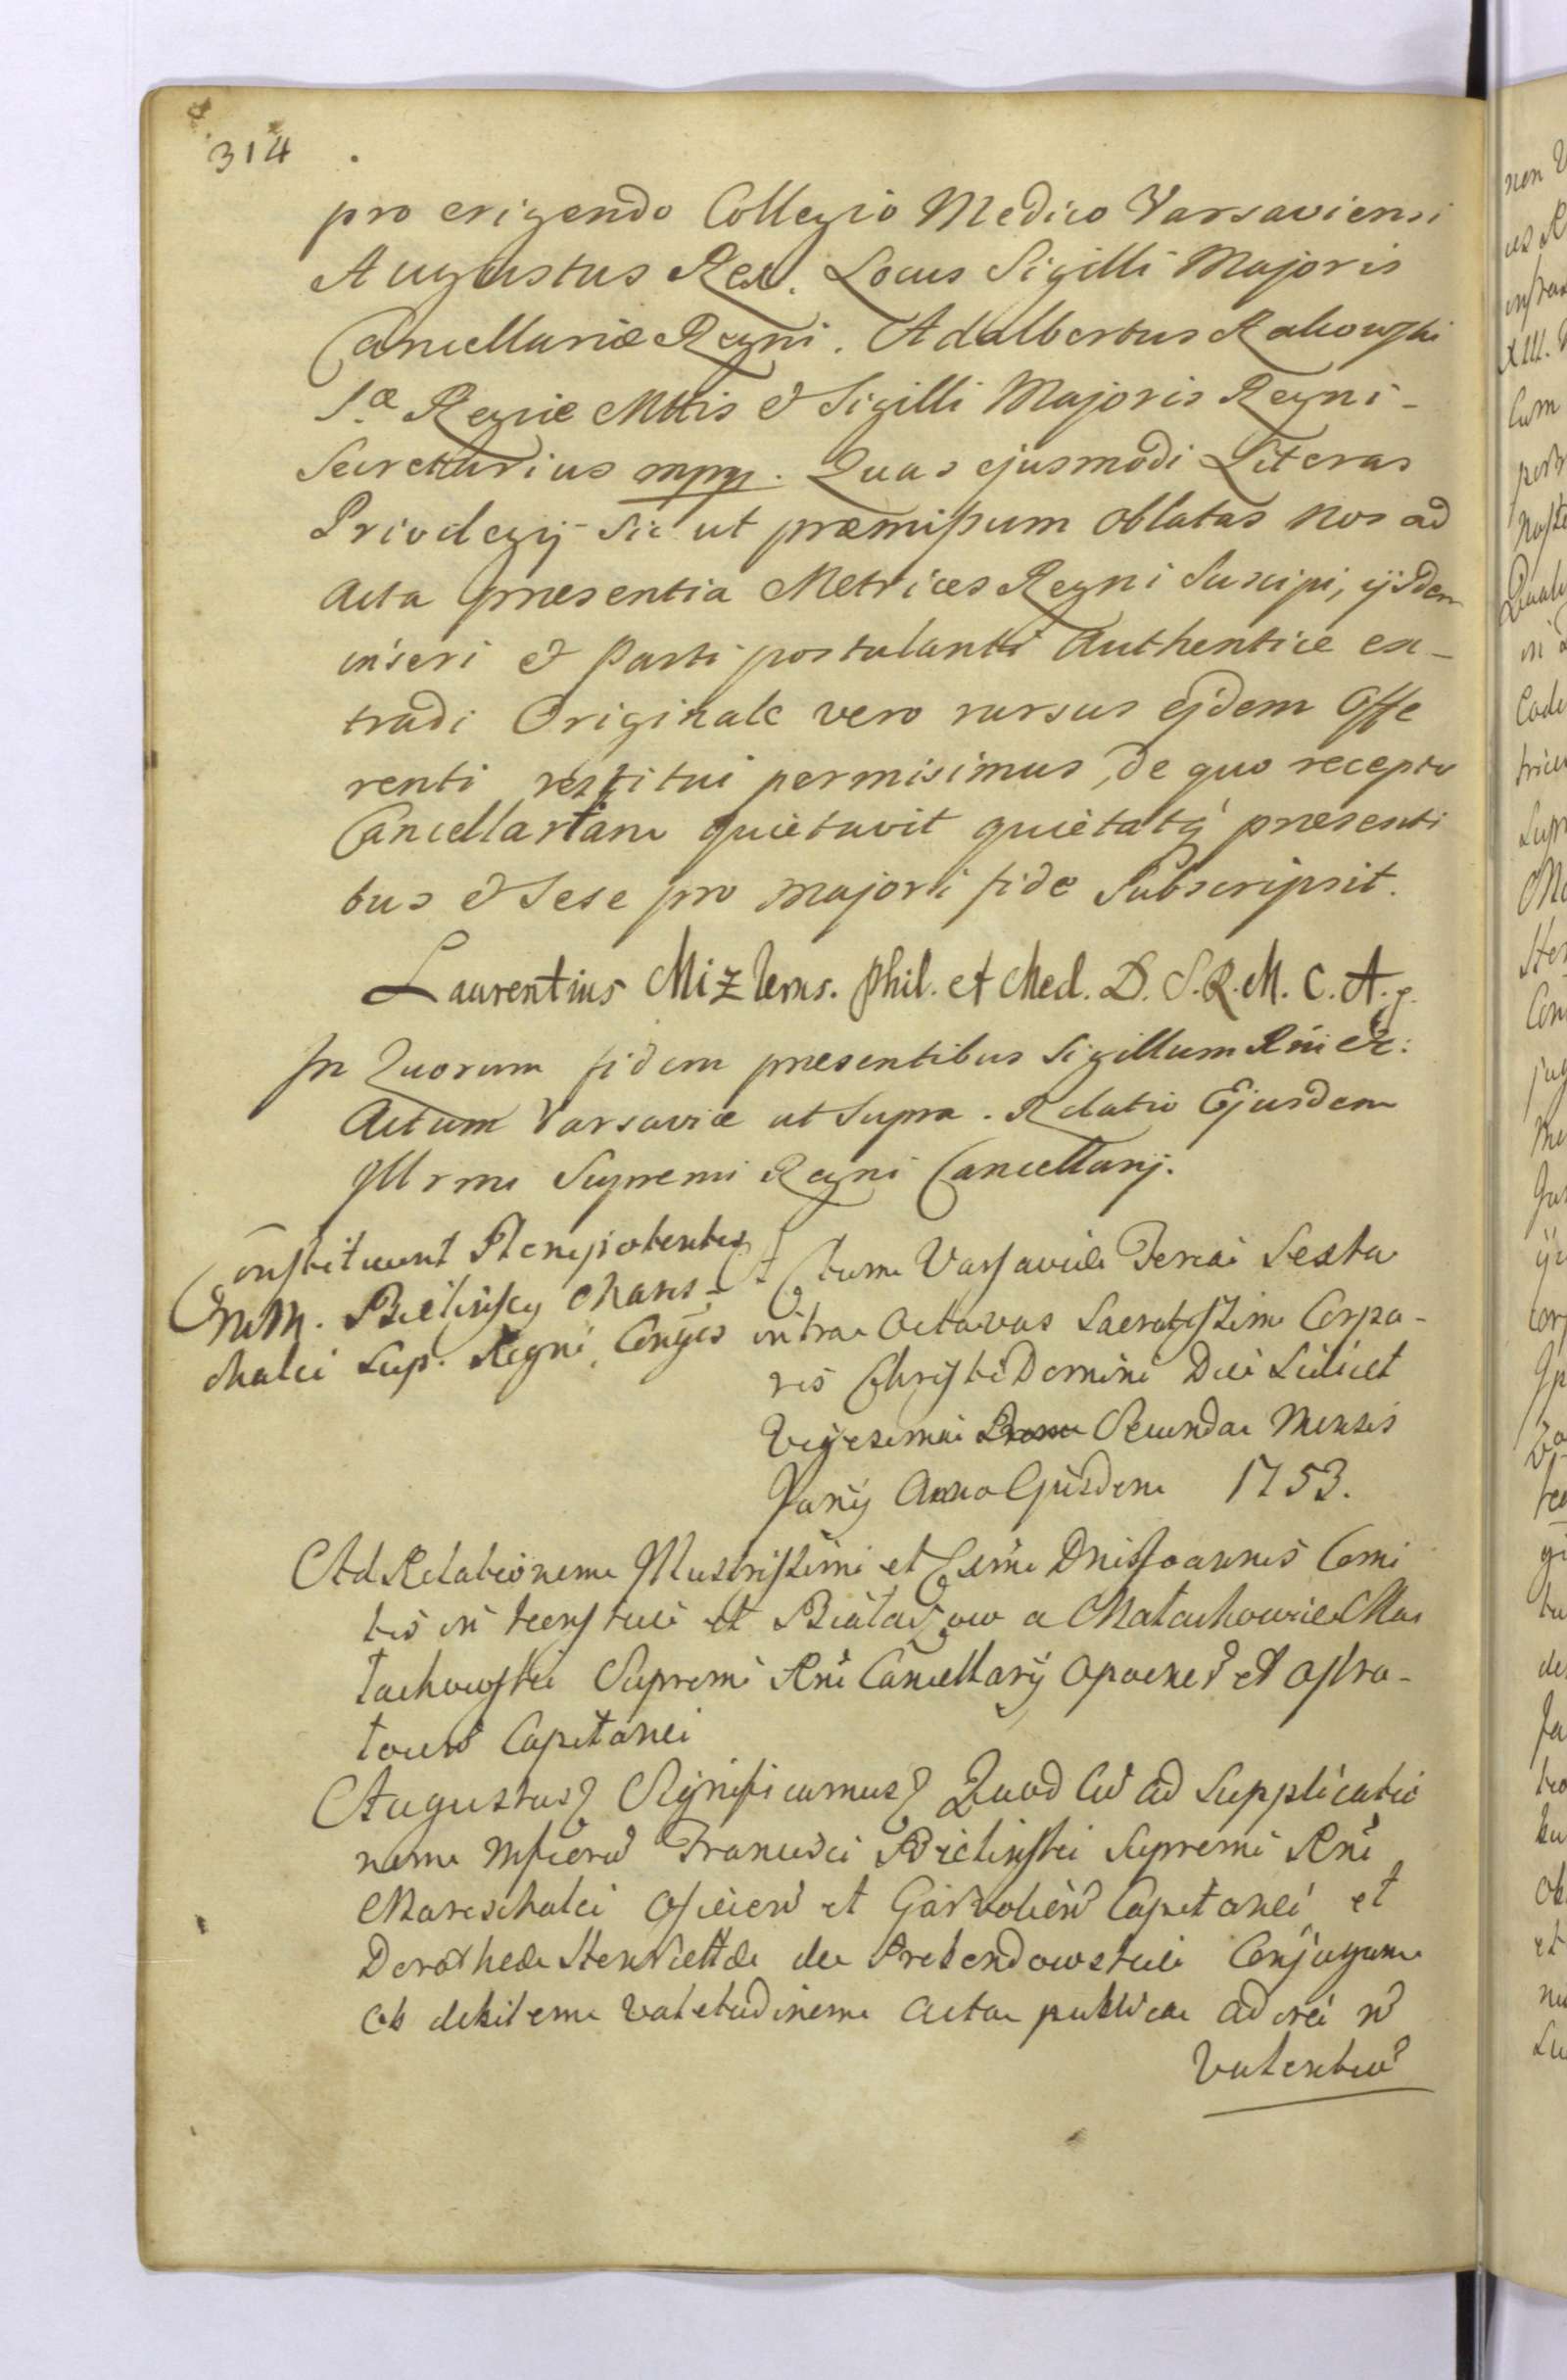 314
pro erigendo Collegio Medico Varsaviensi
Augustus Rex. Locus Sigilli Majoris
Cancellariæ Regni. Adalbertus Rakowski
S.æ Regiæ Mttis & Sigilli Majoris Regni -
Secretarius mpp. Quas ejusmodi Literas
Privilegij sic ut præmissum oblatas nos ad
Acta præsentia Metrices Regni Suscipi, ijsdem
inseri & Parti postulanti Authentice ex-
tradi Originale vero rursus ejdem Offe
renti restitui permisimus, de quo recepto
Cancellariam quietavit quietatq́ præsenti
bus & Sese pro majori fide Subscripsit.
Laurentius Mizlerus. Phil. et Med. D. S. R. M. C. A.
In Quorum fidem præsentibus Sigillum Rni &c:
Actum Varsaviæ ut Supra. Relatio Ejusdem
Illrmi Supremi Regni Cancellarij.
Constituunt Plenipotentes
MM. Bielinscy Mares-
chalci Sup. Regni Conjges
Actum Varsaviæ Feria Sexta
intra Octavas Sacratissimi Corpo-
ris Christi Domini Die Scilicet
Vigesima Secunda Mensis
Junij Anno Ejusdem 1753.
Ad Relationem Illustrissimi et Exmi Dni Joannis Comi
tis in et Białaczow a Małachowice Ma
łachowski Supremi Rni Cancellarij Opocne et Ostro-
Capitanei
Augustus Significamus Quod Cu ad Supplicatio
nem Mficoru Francisci Bielinski Supremi Rni
Mareschalci et Garvolien Capitanei et
Dorotheæ Henriettæ de Prebendowskie Conjugum
Ob debilem Valetudinem Acta publica adire n
Valentiu